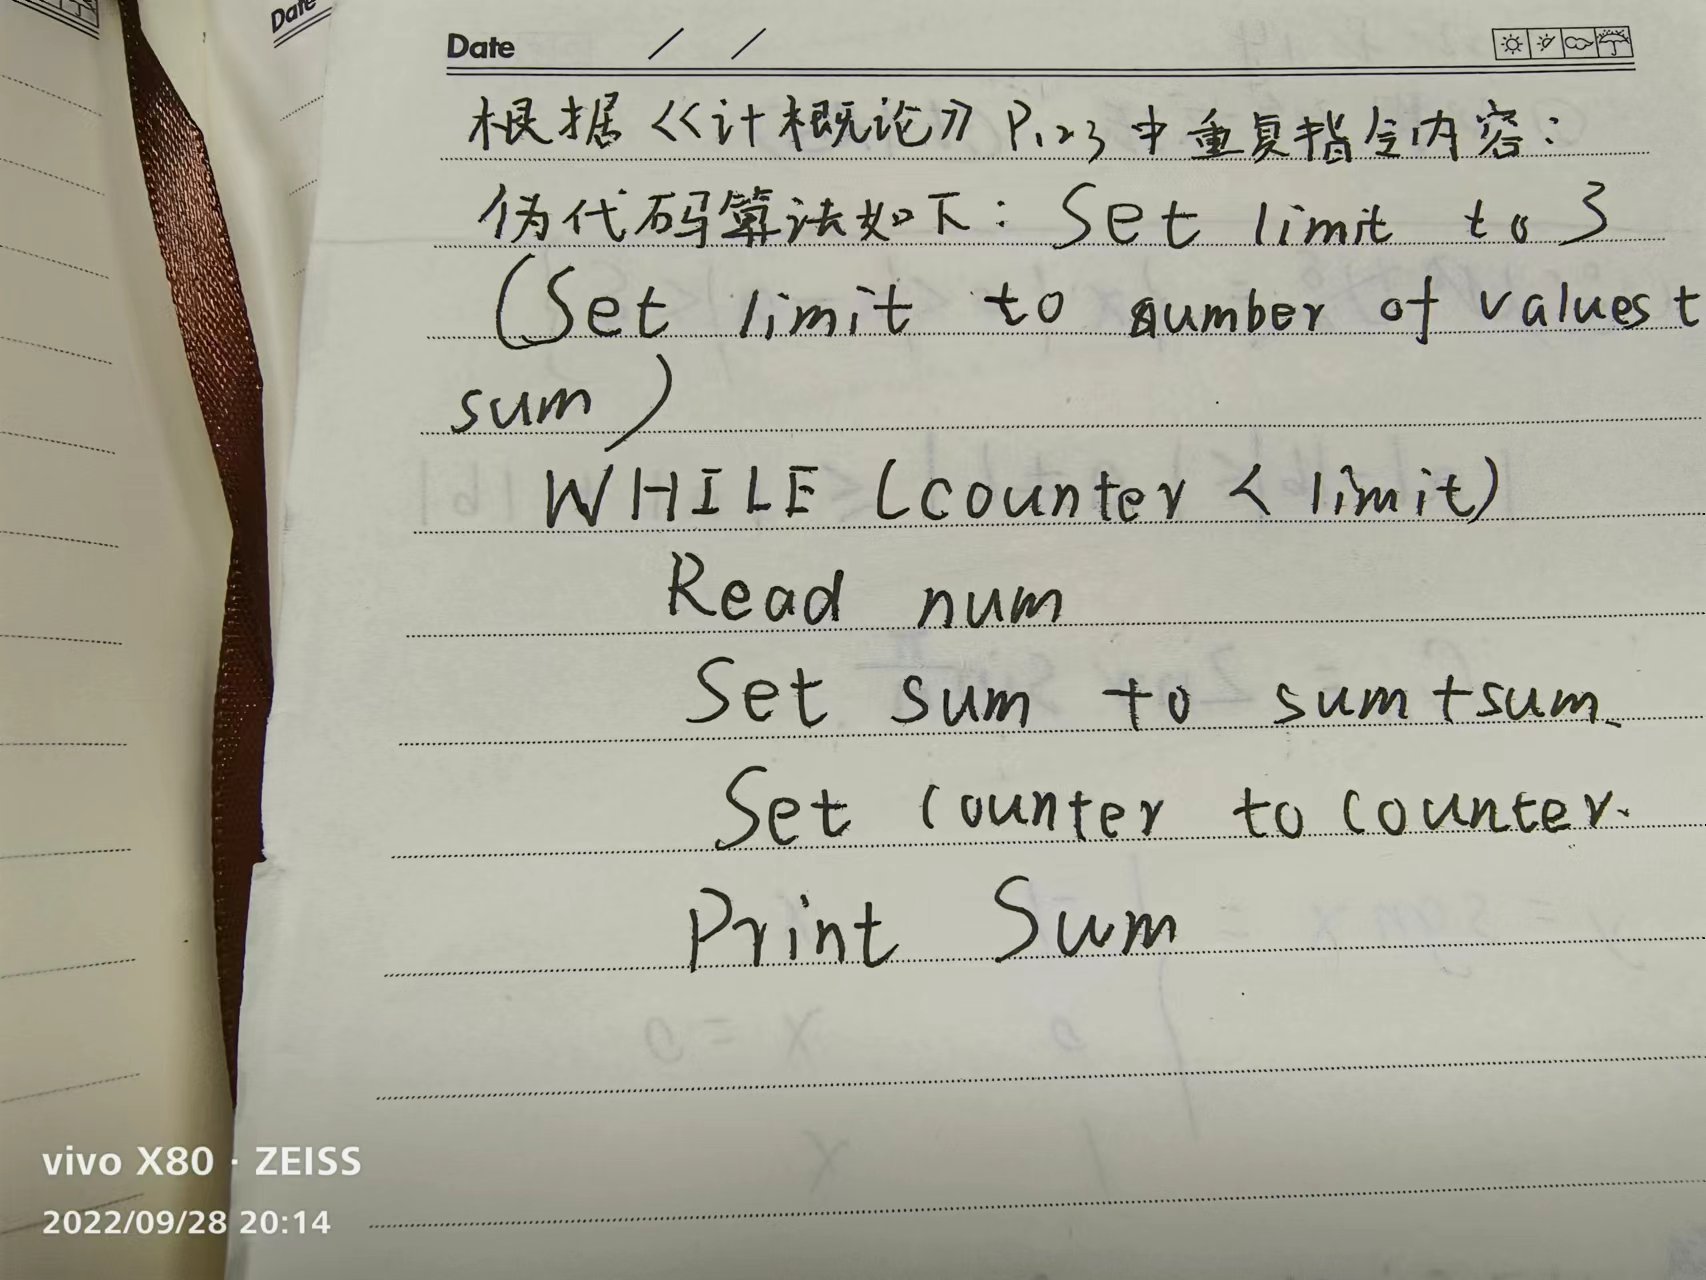 Date / /
Date
根据《计概论》P123中重复指令内容:
伪代码算法如下: Set limit to 3
(Set limit to number of values t
sum)
WHILE (counter < limit)
Read num
Set sum to sum+sum
Set counter to counter.
Print Sum
vivo X80 · ZEISS
2022/09/28 20:14